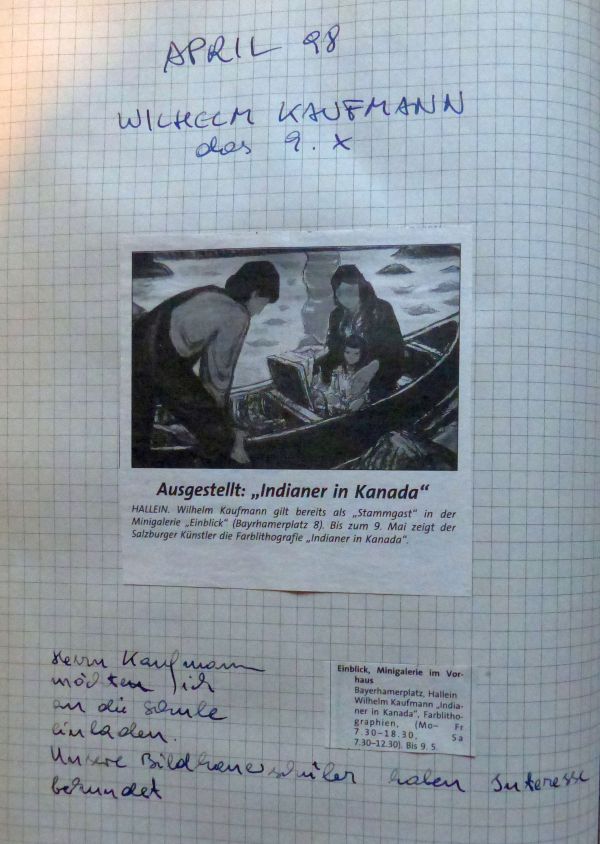 APRIL 98
WILHELM KAUFMANN
das 9. x
Ausgestellt: „Indianer in Kanada“
HALLEIN. Wilhelm Kaufmann gilt bereits als „Stammgast“ in der
Minigalerie „Einblick“ (Bayrhamerplatz 8). Bis zum 9. Mai zeigt der
Salzburger Künstler die Farblithografie „Indianer in Kanada“.
Herrn Kaufmann
möchten ich
an die Schule
einladen.
Unsere Bildhauerschüler haben Interesse
bekundet
Einblick, Minigalerie im Vor-
haus
Bayerhamerplatz, Hallein
Wilhelm Kaufmann „India-
ner in Kanada“, Farblitho-
graphien, (Mo– Fr
7.30–18.30, Sa
7.30–12.30). Bis 9. 5.